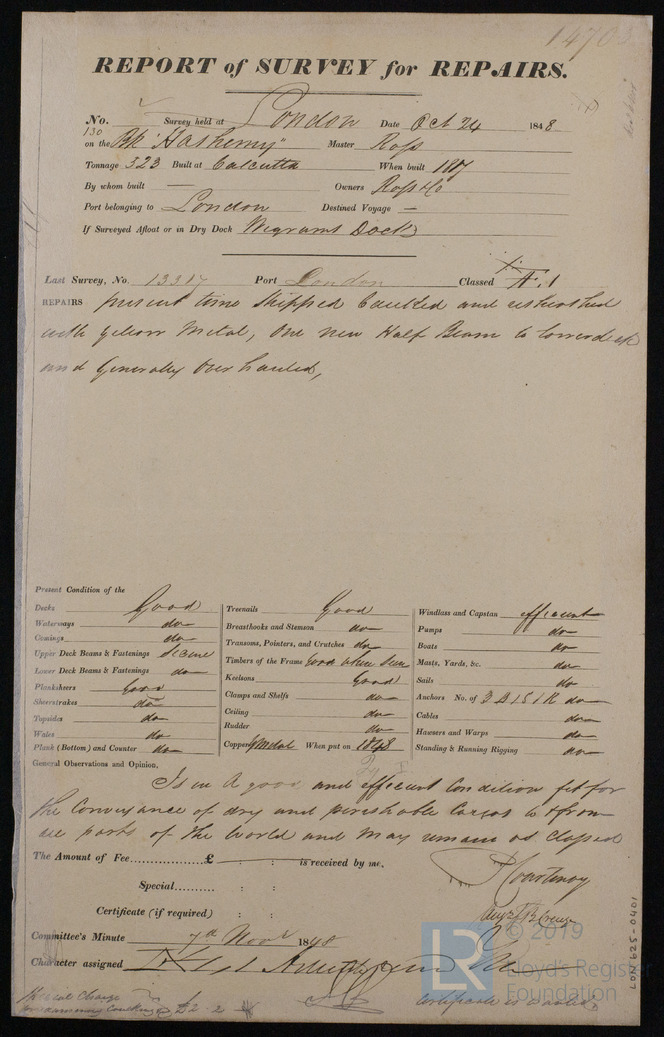 REPORT of SURVEY for REPAIRS.
No. Survey held at London Date Oct 24 1848
130
on the Bk "Hashemy" Master Ross
Tonnage 323 Built at Calcutta When built 1817
By whom built — Owners Ross & Co
Port belonging to London Destined Voyage —
If Surveyed Afloat or in Dry Dock Wigrams Dock
Last Survey, No. 13317 Port London Classed Æ 1
REPAIRS present time Stripped Caulked and resheathed
with yellow Metal, One new Half Beam to lowerdeck
and Generally Over hauled,
Present Condition of the
Decks Good
Waterways do
Comings do
Upper Deck Beams & Fastenings Secure
Lower Deck Beams & Fastenings do
Planksheers Good
Sheerstrakes do
Topsides do
Wales do
Plank (Bottom) and Counter do
Treenails Good
Breasthooks and Stemson do
Transoms, Pointers, and Crutches do
Timbers of the Frame Good where seen
Keelsons Good
Clamps and Shelfs do
Ceiling do
Rudder do
Copper Y Metal When put on 1848
Windlass and Capstan efficient
Pumps do
Boats do
Masts, Yards, &c. do
Sails do
Anchors No. of 3 B 1 S 1 K do
Cables do
Hawsers and Warps do
Standing & Running Rigging do
General Observations and Opinion,
Is in A good and efficient Condition fit for
the Conveyance of dry and perishable Cargos to & from
all parts of the World and May remain as Classed
The Amount of Fee £ : : is received by me,
Courtenay
Special : :
Certificate (if required) : :
Committee's Minute 7th Novr 1848
Character assigned
Special Charge
£2 - 2
Certificate is wanted
LON 625-0401
© 2019
LR
Lloyd's Register
Foundation